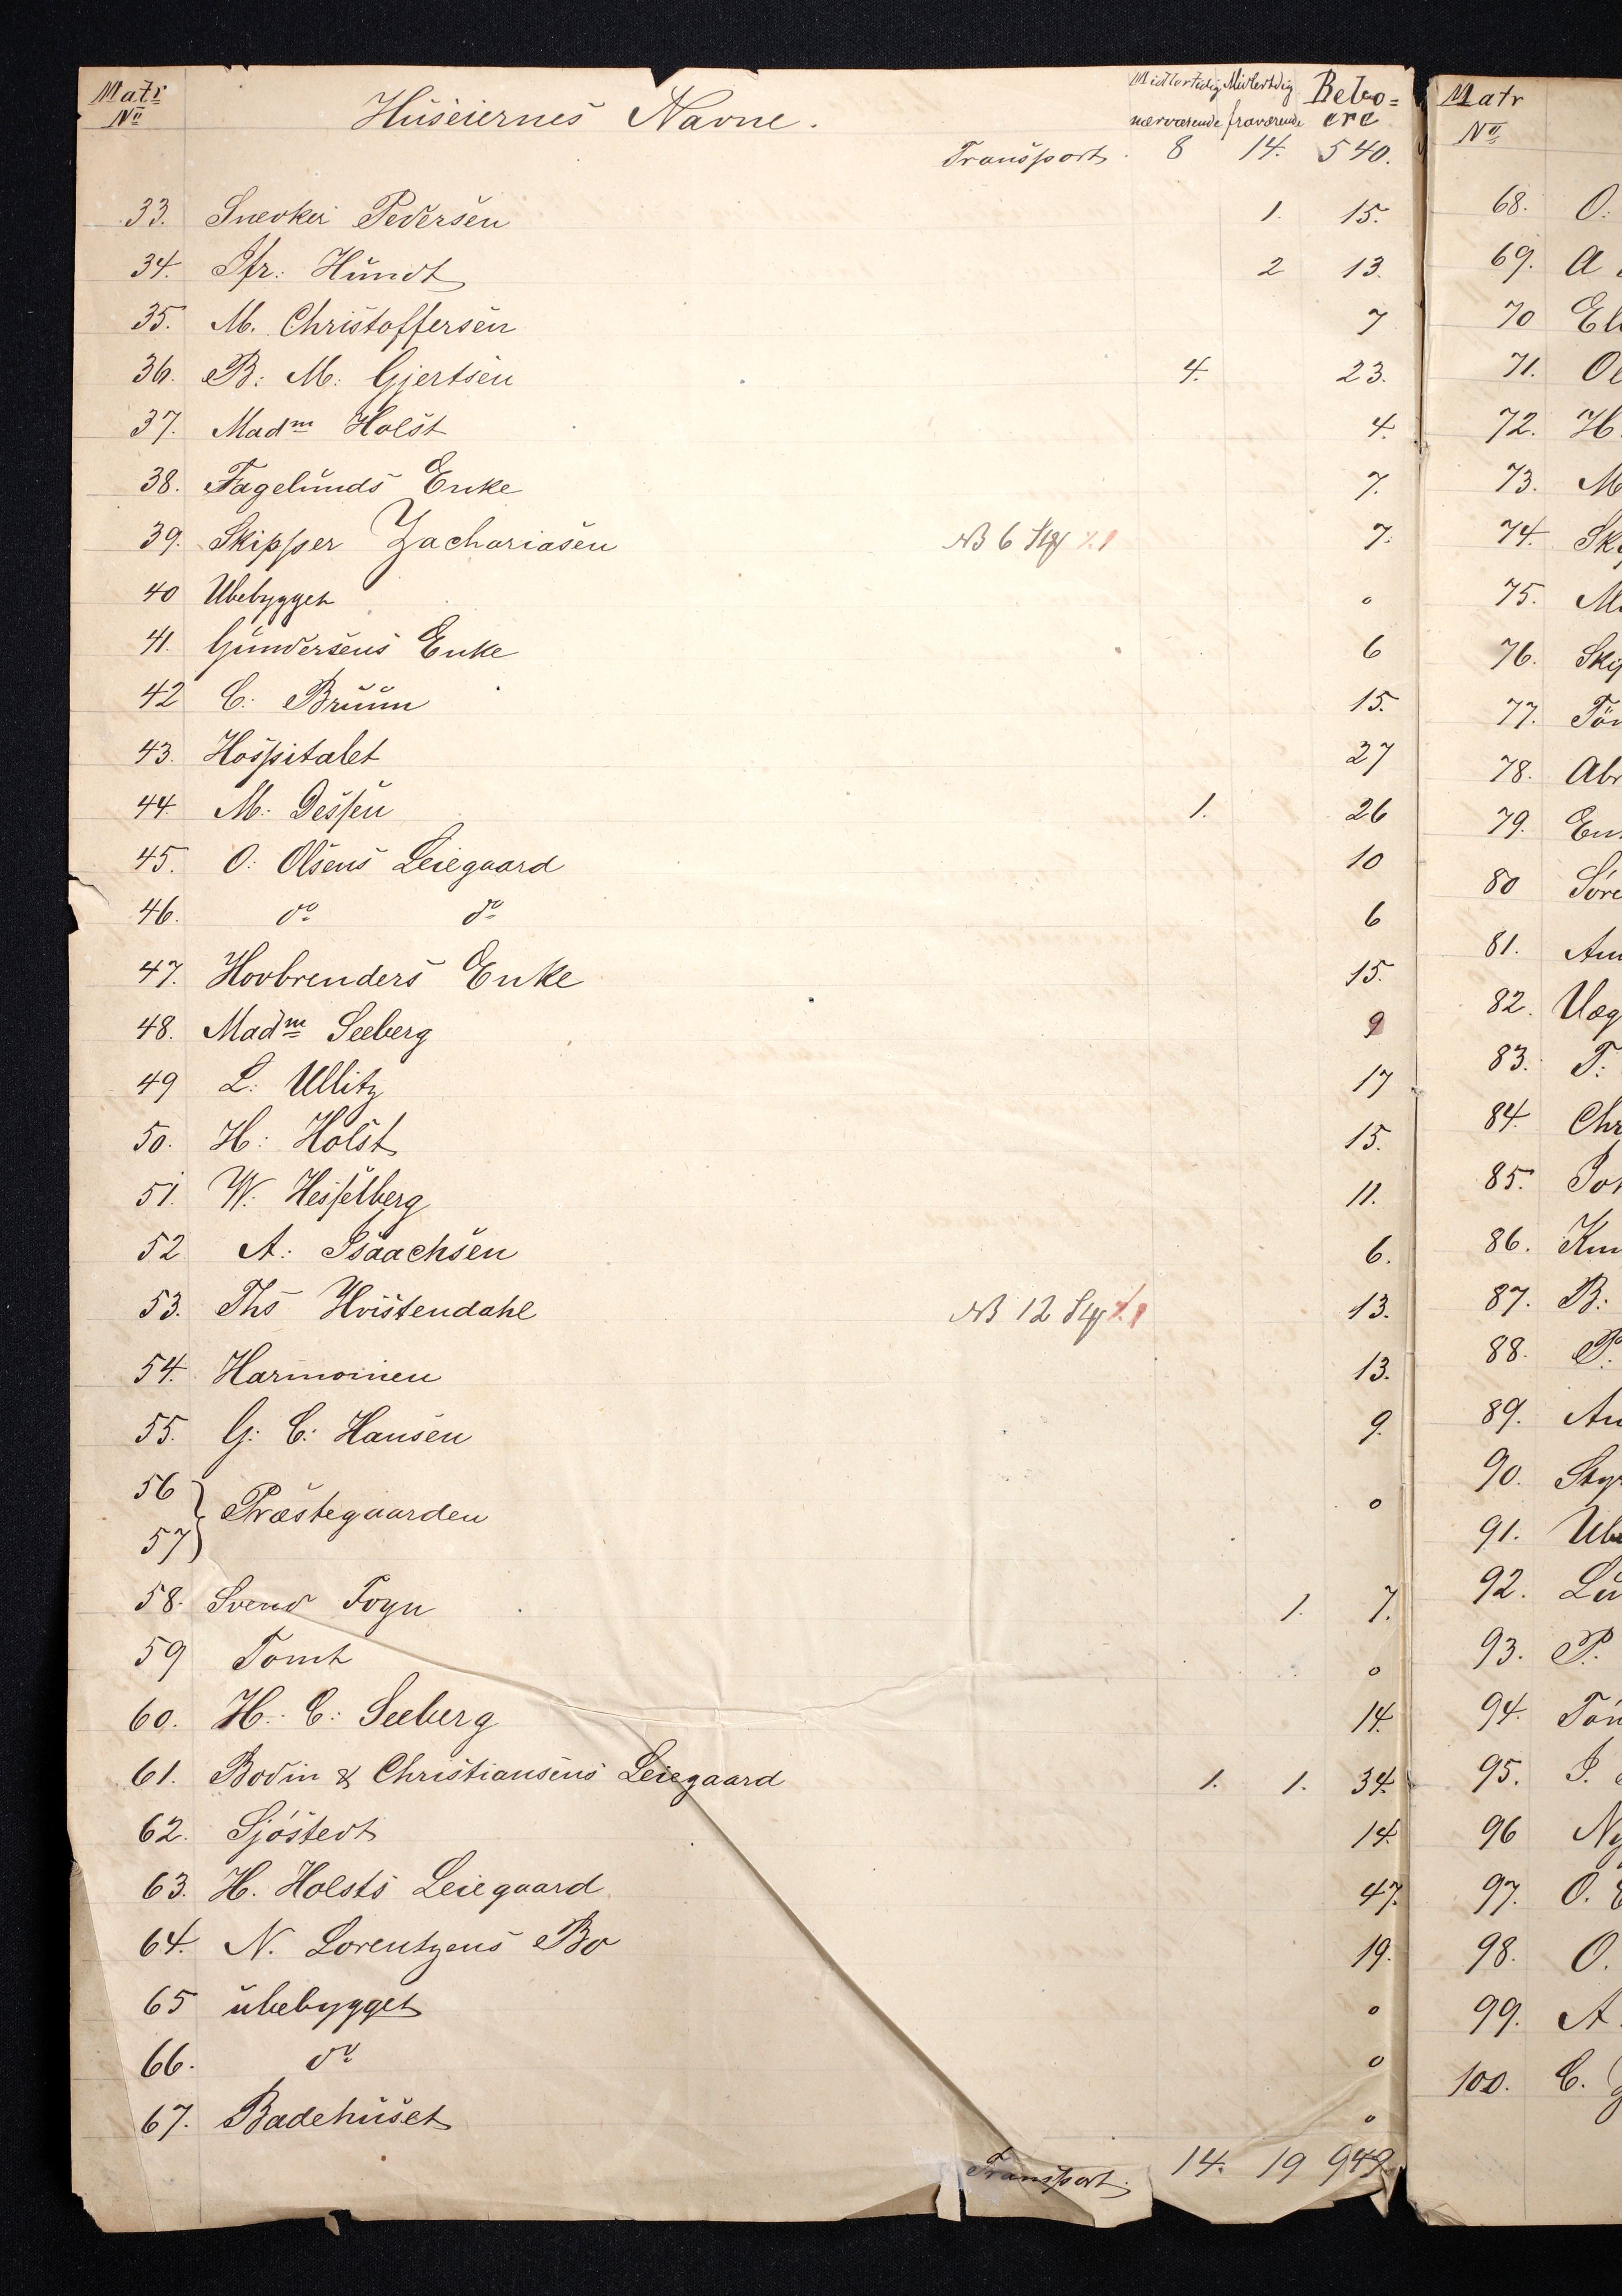 Matr Nº Huseiernes Navne. Midlertidig nærværende Midlertidig fraværende Beboere
Transport. 8 14. 540.
33. Snedker Pedersen 1. 15.
34. Jfr: Hundt 2 13.
35. M. Christoffersen 7
36. B: M: Gjertsen 4. 23.
37. Madm Holst 4.
38. Fagelunds Enke 7.
39. Skipper Zachariasen NB 6 7.
40 Ubebygget 0
41. Gundersens Enke 6
42 C: Bruun 15.
43. Hospitalet 27
44. M. Dessen 1. 26
45. O: Olsens Leiegaard 10
46. do do 6
47. Hovbrenders Enke 15.
48. Madm Seeberg 9
49 L: Ullitz 17
50. H: Holst 15.
51. W. Hesselberg 11.
52 A: Isaachsen 6.
53. Ths Hvistendahl NB 12 13.
54. Harmonien 13.
55. G: C: Hansen 9.
56
57 } Præstegaarden 0
58. Svend Foyn 1. 7.
59 Tomt 0
60. H. C: Seeberg 14.
61. Bodin & Christiansens Leiegaard 1. 1. 34.
62. Sjöstedt 14.
63. H. Holsts Leiegaard 47.
64. N. Lorentzens Bo 19.
65 ubebygget 0
66. do 0
67. Badehuset 0
Transport. 14. 19 949.
Matr
Nº
68. O:
69. A
70 El
71. Ol
72. H.
73. M
74. Sk
75. M
76. Ski
77. Tön
78. Abr
79. En
80 Söre
81. An
82. Væg
83. T:
84. Chr
85. Joh
86. Knu
87. B:
88. P.
89. An
90. Styr
91. Ube
92. Lu
93. P.
94. Tön
95. J.
96 Ny
97. O.
98. O.
99. A.
100. C.